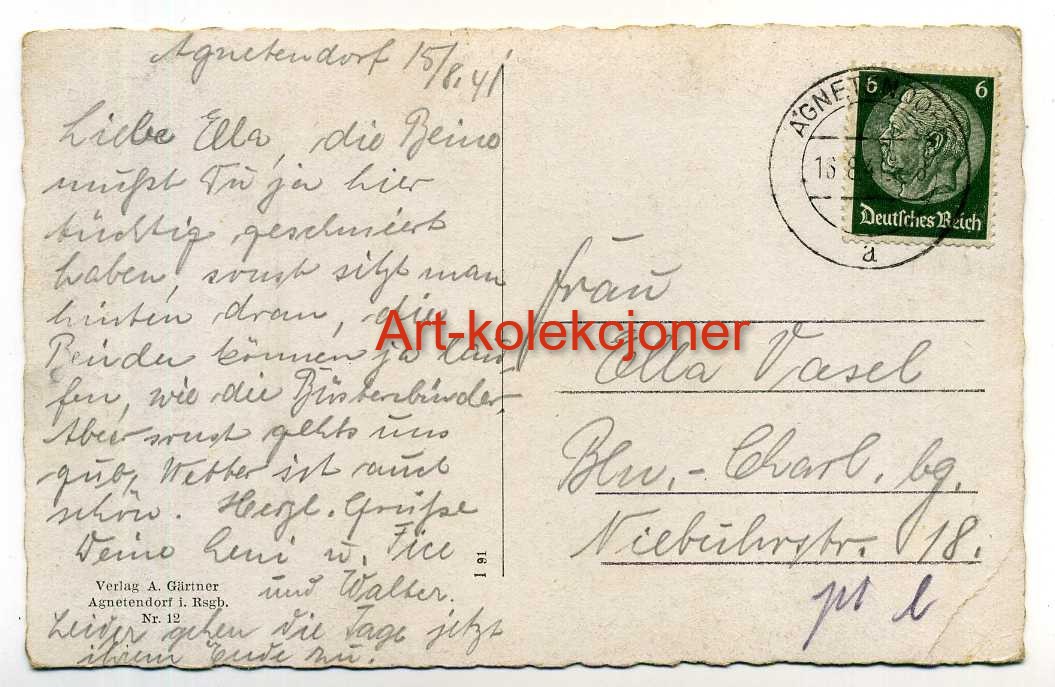 Agnetendorf 15/8.41
Liebe Ella, die Beine
mußt Du ja hier
tüchtig geschmiert
haben, sonst sitzt man
hinten dran, die
Beiden können ja lau-
fen, wie die Bürstenbinder.
Aber sonst gehts uns
gut, Wetter ist auch
schön. Herzl. Grüße
Deine Leni u.
und Walter.
Leider gehen die Tage jetzt
ihrem Ende zu.
Verlag A. Gärtner
Agnetendorf i. Rsgb.
Nr. 12
I 91
AGNETENDO
16.8.
a
6 6
Deutsches Reich
Art-kolekcjoner
Frau
Ella Vasel
Bln.-Charl. bg.
Niebuhrstr. 18.
pt l